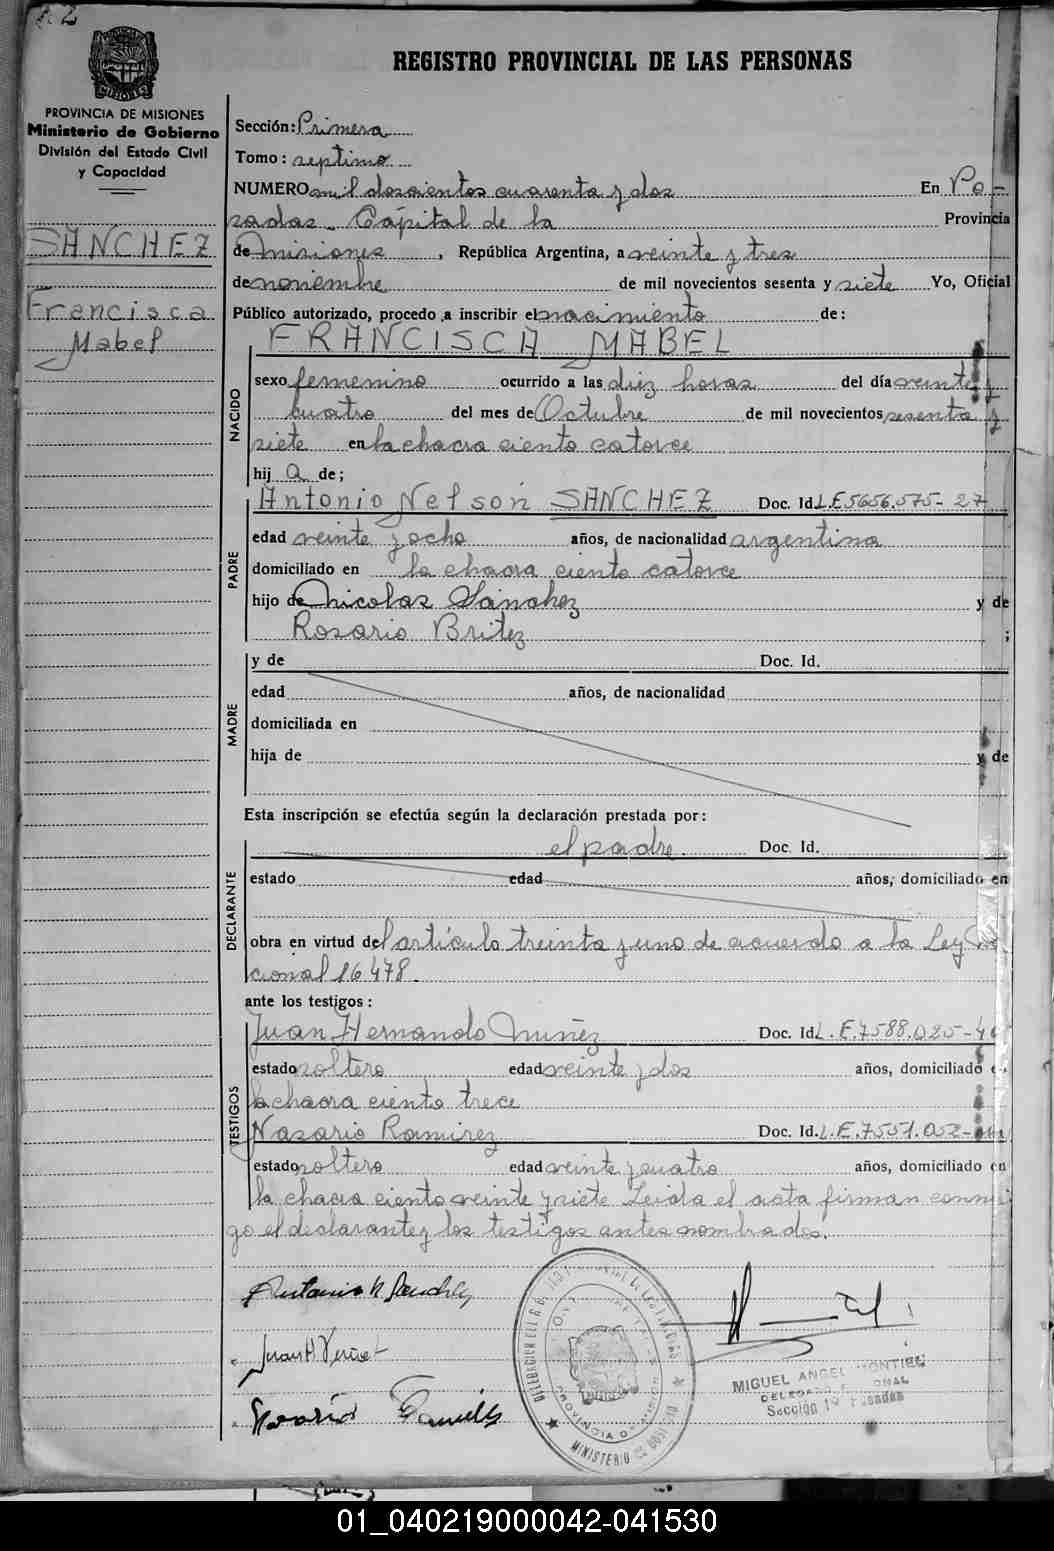 REGISTRO PROVINCIAL DE LAS PERSONAS
MISIONES
PROVINCIA DE MISIONES
Ministerio de Gobierno
División del Estado Civil
y Capacidad
SANCHEZ
Francisca
Mabel
Sección: Primera
Tomo: septimo
NUMERO mil doscientos cuarenta y dos En Po-
sadas - Capital de la Provincia
de Misiones, República Argentina, a veinte y tres
de noviembre de mil novecientos sesenta y siete Yo, Oficial
Público autorizado, procedo a inscribir el nacimiento de:
FRANCISCA MABEL
NACIDO
sexo femenino ocurrido a las diez horas del día veinte y
cuatro del mes de Octubre de mil novecientos sesenta y
siete en la chacra ciento catorce
hij a de;
PADRE
Antonio Nelson SANCHEZ Doc. Id. L.E 5656.575-27
edad veinte y ocho años, de nacionalidad argentina
domiciliado en la chacra ciento catorce
hijo de Nicolas Sánchez y de
Rosario Britez ;
MADRE
y de Doc. Id.
edad años, de nacionalidad
domiciliada en
hija de y de
Esta inscripción se efectúa según la declaración prestada por:
DECLARANTE
el padre Doc. Id.
estado edad años, domiciliado en
obra en virtud del artículo treinta y uno de acuerdo a la Ley Na
cional 16478.
ante los testigos:
TESTIGOS
Juan Hernando Nuñez Doc. Id. L.E. 7588.025-
estado soltero edad veinte y dos años, domiciliado
la chacra ciento trece
Nasario Ramirez Doc. Id. L.E. 7551.052-
estado soltero edad veinte y cuatro años, domiciliado en
la chacra ciento veinte y siete Leida el acta firman conmi
go el declarante y los testigos antes nombrados.
Antonio N Sanchez
Juan H Nuñez
MINISTERIO DE GOBIERNO
PROVINCIA DE MISIONES
MIGUEL ANGEL MONTIEL
Sección 1ª Posadas
01_040219000042-041530